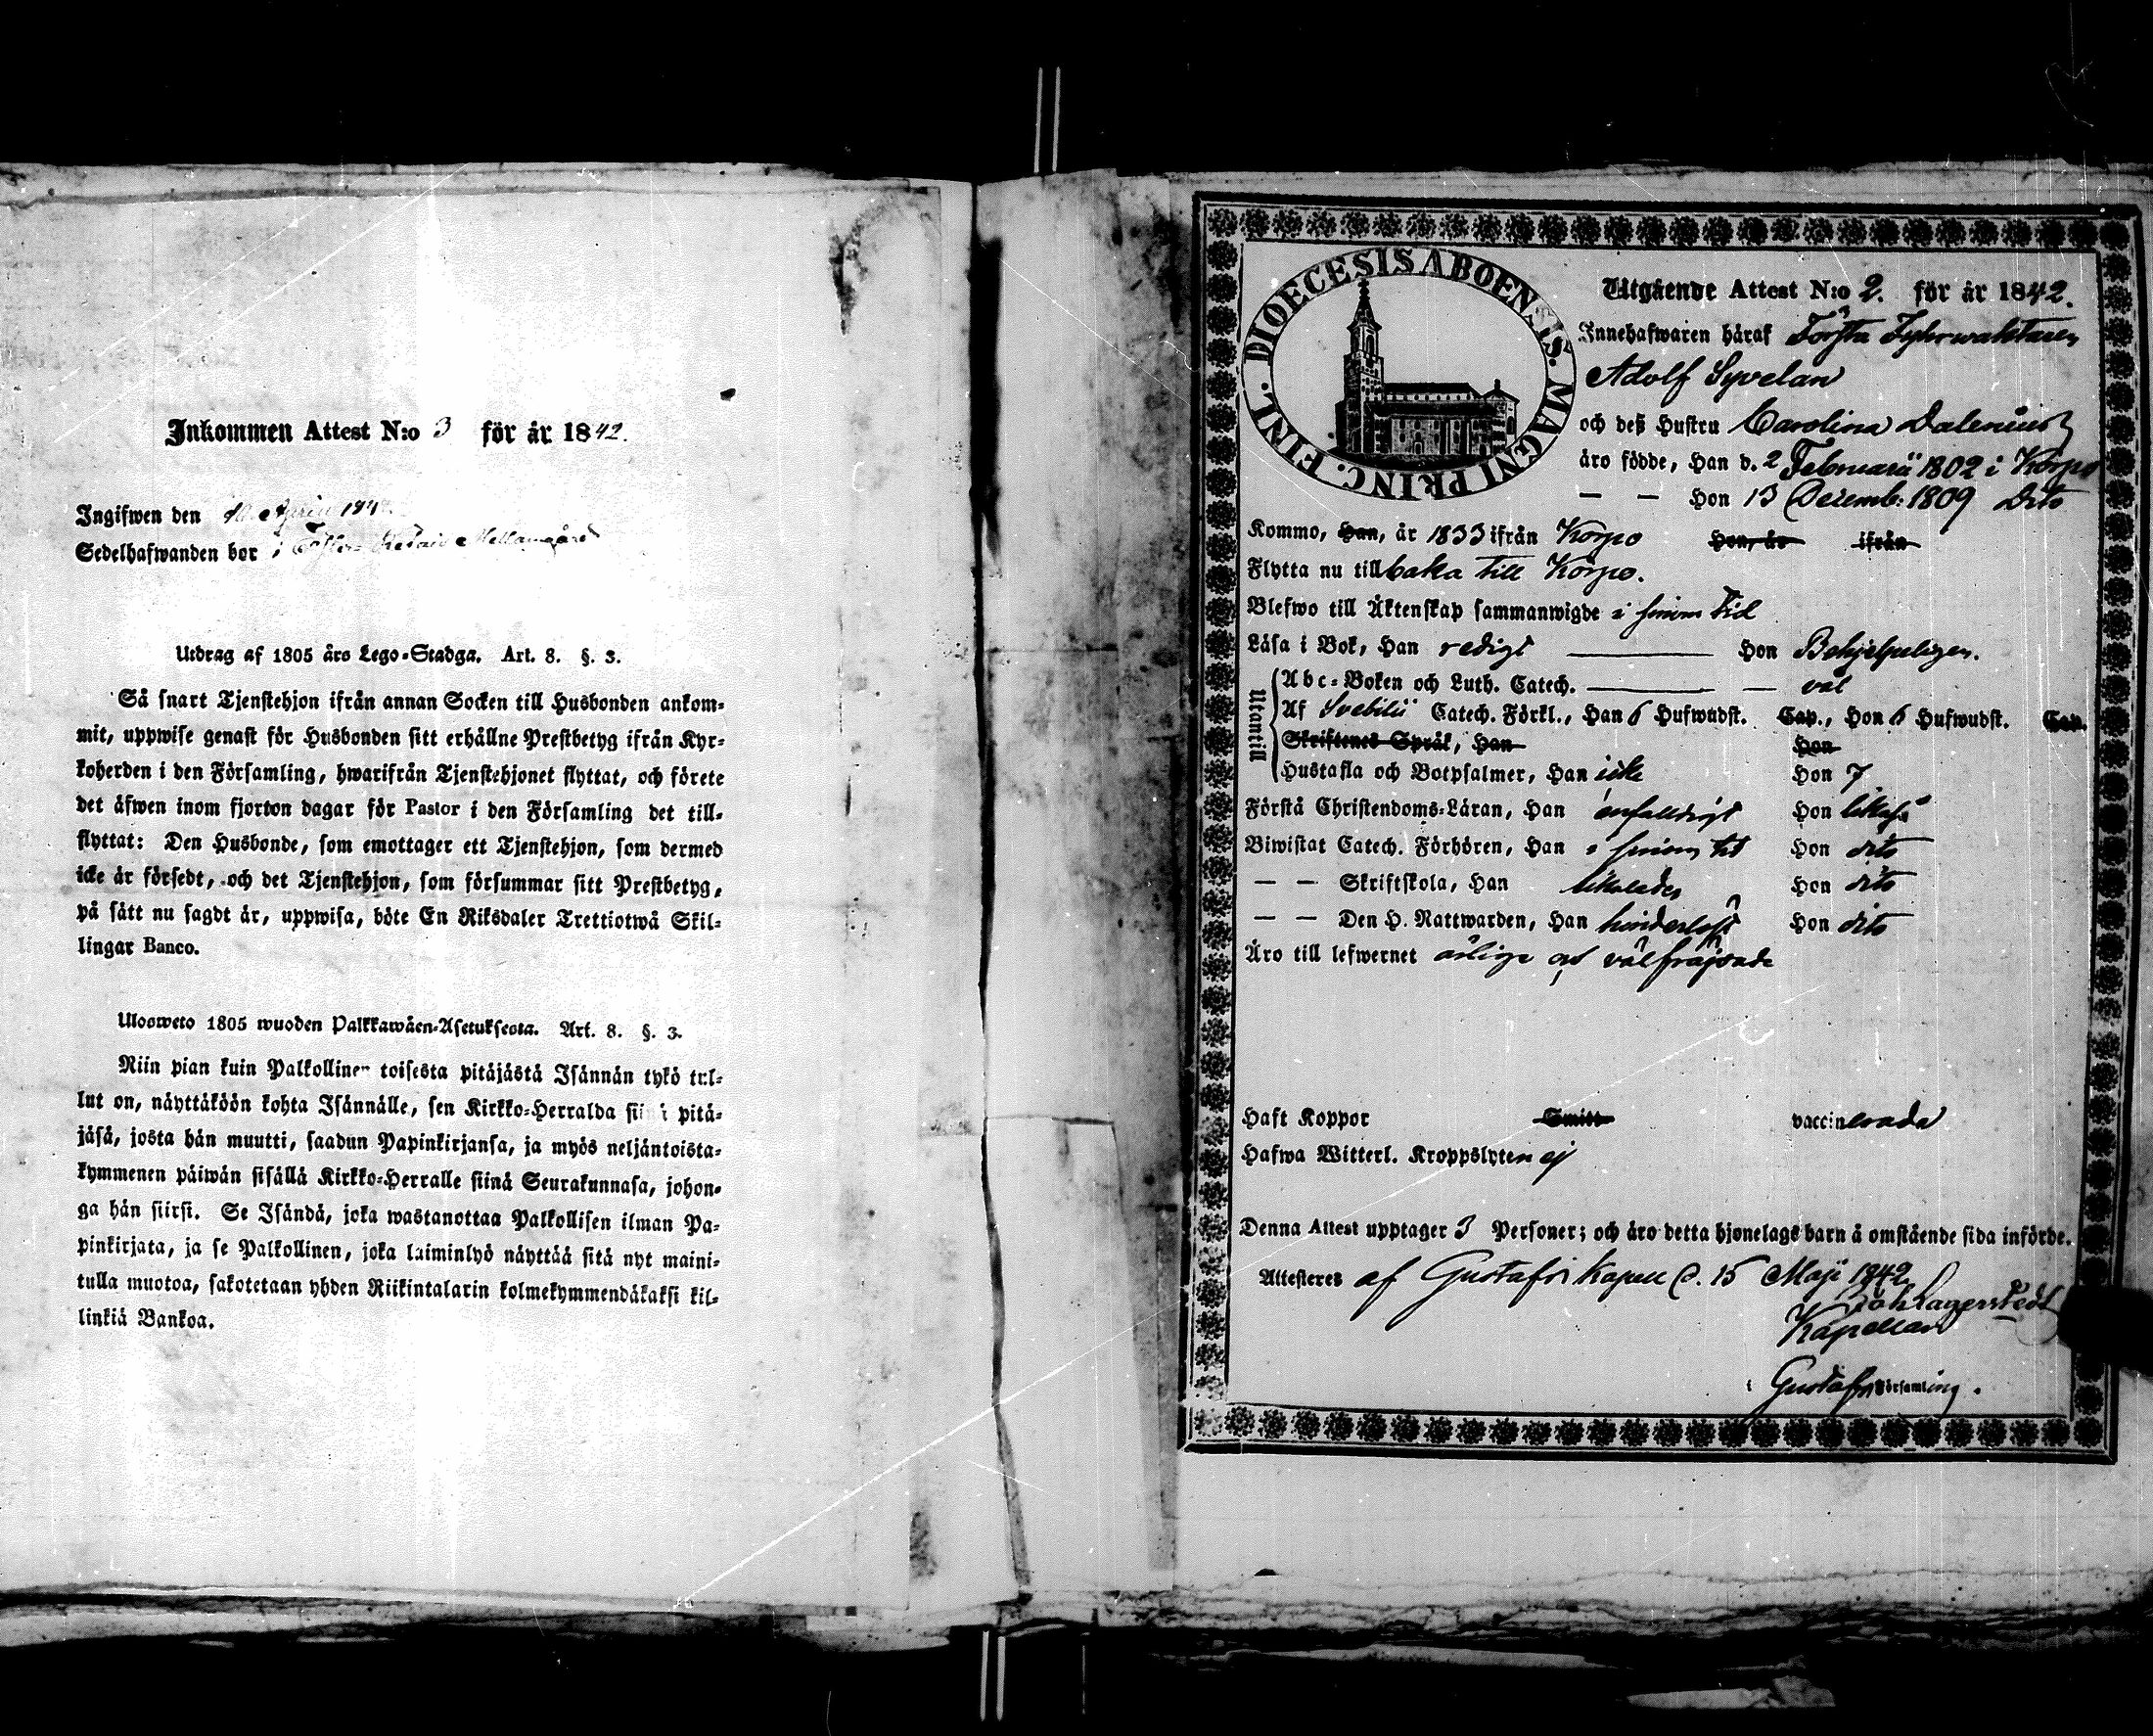 Inkommen Attest N:o 3 för år 1842.
Ingifwen den April 184
Sedelhafwanden bor i Mellangård
Utdrag af 1805 års Lego-Stadga. Art. 8. §. 3.
Så snart Tjenstehjon ifrån annan Socken till Husbonden ankom-
mit, uppwise genast för Husbonden sitt erhållne Prestbetyg ifrån Kyr-
koherden i den Församling, hwarifrån Tjenstehjonet flyttat, och förete
det äfwen inom fjorton dagar för Pastor i den Församling det till-
flyttat: Den Husbonde, som emottager ett Tjenstehjon, som dermed
icke är försedt, och det Tjenstehjon, som försummar sitt Prestbetyg,
på sätt nu sagdt är, uppwisa, böte En Riksdaler Trettiotwå Skil-
lingar Banco.
Ulosweto 1805 wuoden Palkkawäen-Asetuksesta. Art. 8. §. 3.
Niin pian kuin Palkollinen toisesta pitäjästä Isännän tykö tul-
lut on, näyttäköön kohta Isännälle, sen Kirkko-Herralda siinä pitä-
jäsä, josta hän muutti, saadun Papinkirjansa, ja myös neljäntoista-
kymmenen päiwän sisällä Kirkko-Herralle siinä Seurakunnasa, johon-
ga hän siirsi. Se Isändä, joka wastanottaa Palkollisen ilman Pa-
pinkirjata, ja se Palkollinen, joka laiminlyö näyttää sitä nyt maini-
tulla muotoa, sakotetaan yhden Riikintalarin kolmekymmendäkaksi kil-
linkiä Bankoa.
DIOECESIS ABOENSIS. MAGNI PRINC. FINL.
Utgående Attest N:o 2. för år 1842.
Innehafwaren häraf Första Fyhrwaktaren
Adolf Syvelan
och deß Hustru Carolina Dalenius
äro födde, Han d. 2 Februarii 1802 i Korpo
— — Hon 13 Decemb: 1809 Dito
Kommo, Han, år 1833 ifrån Korpo Hon, år ifrån
Flytta nu tillbaka till Korpo.
Blefwo till Äktenskap sammanwigde i sinom tid
Läsa i Bok, Han redigt — Hon Behjelpeligen.
Utantill
Abc-Boken och Luth. Catech. — — väl
Af Svebilii Catech. Förkl., Han 6 Hufwudst. Cap., Hon 6 Hufwudst. Cap.
Skriftenes Språk, Han Hon
Hustafla och Botpsalmer, Han icke Hon 7
Förstå Christendoms-Läran, Han enfalldigt Hon likaså
Biwistat Catech. Förhören, Han i sinom tid Hon dito
— — Skriftskola, Han likaledes Hon dito
— — Den H. Nattwarden, Han hinderlöst Hon dito
Äro till lefwernet ärlige och välfräjdade
Haft Koppor Smitt vaccinerade
Hafwa Witterl. Kroppslyten ej
Denna Attest upptager 3 Personer; och äro detta hjonelags barn å omstående sida införde.
Attesteres af Gustafs Kapell d. 15 Maji 1842
Joh Lagerstedt
Kapellan
i Gustafs Församling.